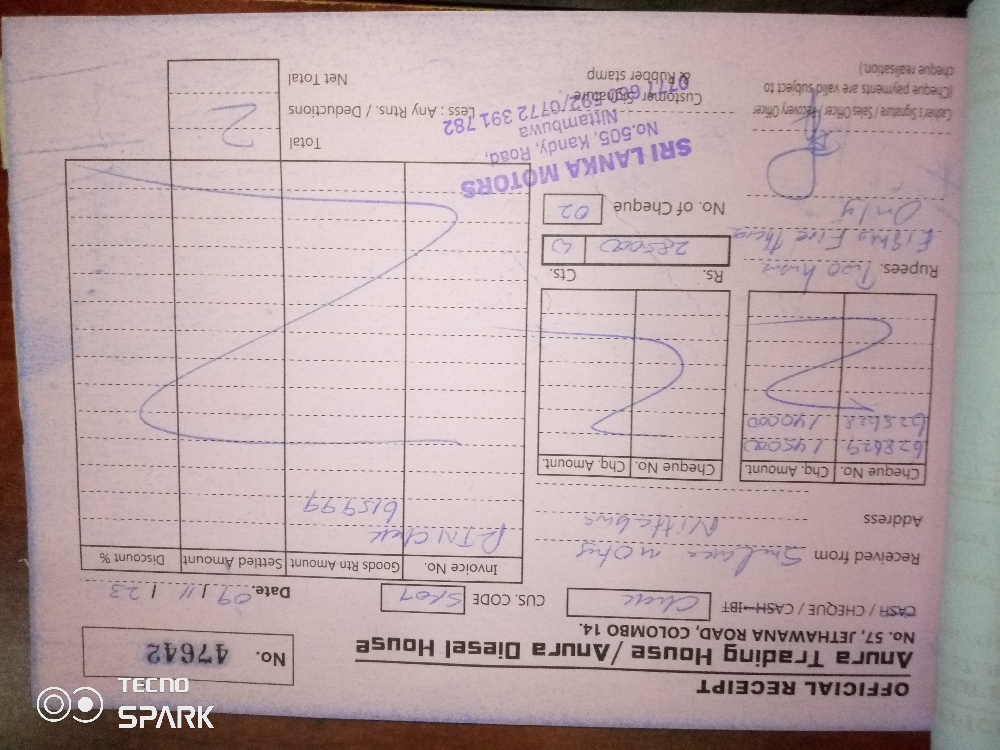 OFFICIAL RECEIPT
Anura Trading House / Anura Diesel House
No. 57, JETHAWANA ROAD, COLOMBO 14.
No. 47642
CASH / CHEQUE / CASH IBT
CUS. CODE
Date. 09 / 11 / 23
Received from
Address
Cheque No. Chq. Amount
628629 145000
628628 140000
Cheque No. Chq. Amount
Invoice No. Goods Rtn Amount Settled Amount Discount %
RTN
615999
Rupees. Two
Eighty Five
Only
Rs. Cts.
285000
No. of Cheque 02
Total
Less : Any : Rtns / Deductions
Net Total
Cashier's Signature / Sales Officer / Recovery Officer
(Cheque payments are valid subject to
cheque realisation.)
Customer Signature
& Rubber stamp
SRI LANKA MOTORS
No.505, Kandy, Road,
Nittambuwa
0771 660 592/0772 391 782
TECNO
SPARK